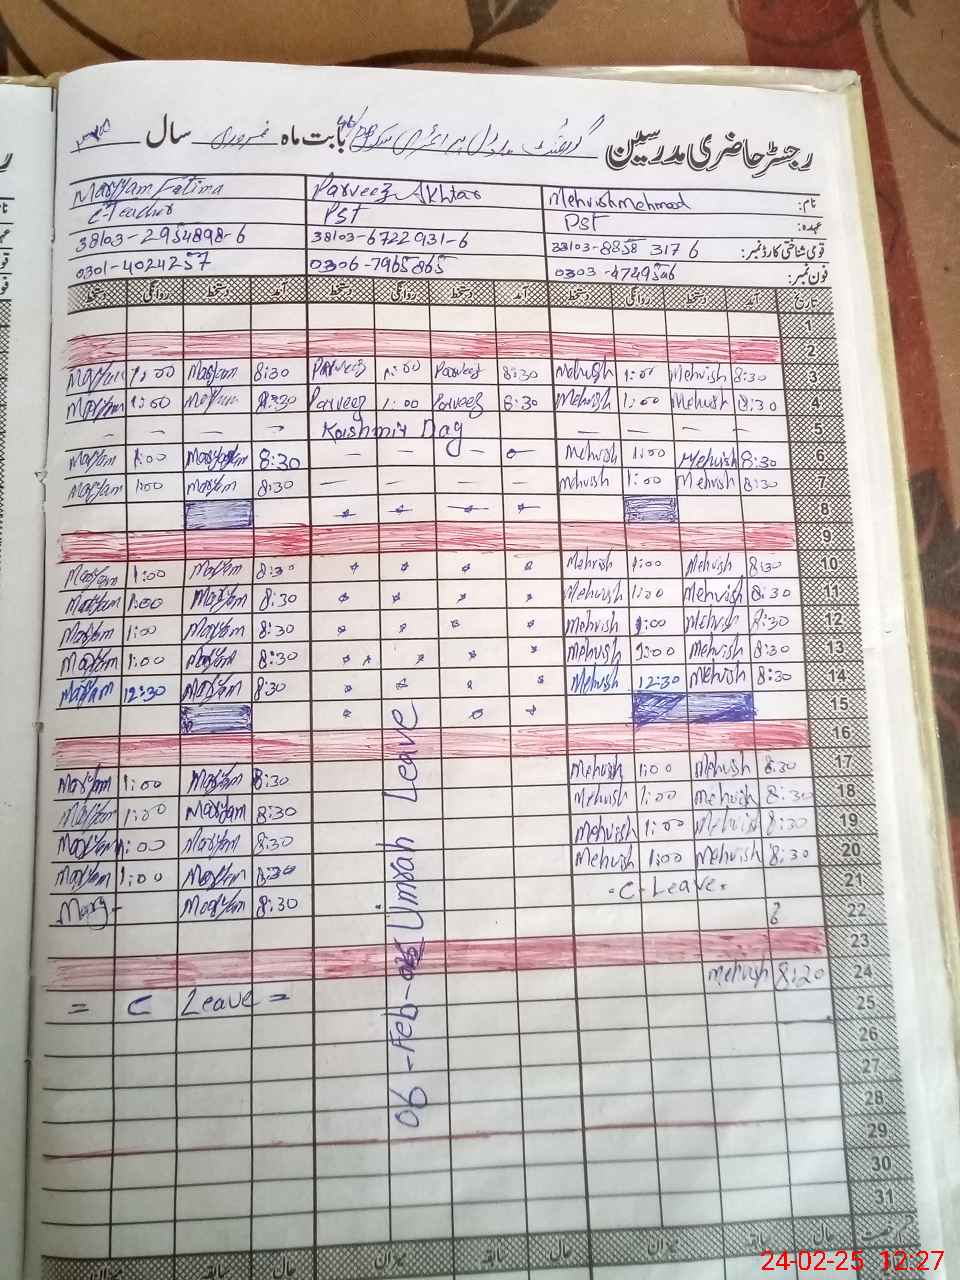 رجسٹر حاضری مدرسین گورنمنٹ ماڈل پرائمری سکول بابت ماہ فروری سال
نام: Mehvish Mehmood Parveez Akhtar Maryam Fatima
عہدہ: PST PST C-Teacher
قومی شناختی کارڈ نمبر: 38103-6722931-6 38103-2954898-6
فون نمبر: 0306-7965865 0301-4024257
تاریخ آمد دستخط روانگی دستخط آمد دستخط روانگی دستخط آمد دستخط روانگی دستخط
1
2
3 8:30 Mehvish 1:00 Mehvish 8:30 Parveez 1:00 Parveez 8:30 Maryam 1:00 Maryam
4 8:30 Mehvish 1:00 Mehvish 8:30 Parveez 1:00 Parveez 8:30 Maryam 1:00 Maryam
5 Kashmir Day
6 8:30 Mehvish 1:00 Mehvish 8:30 Maryam 1:00 Maryam
7 8:30 Mehvish 1:00 Mehvish 8:30 Maryam 1:00 Maryam
8
9
10 8:30 Mehvish 1:00 Mehvish 8:30 Maryam 1:00 Maryam
11 8:30 Mehvish 1:00 Mehvish 8:30 Maryam 1:00 Maryam
12 8:30 Mehvish 1:00 Mehvish 8:30 Maryam 1:00 Maryam
13 8:30 Mehvish 1:00 Mehvish 8:30 Maryam 1:00 Maryam
14 8:30 Mehvish 12:30 Mehvish 8:30 Maryam 12:30 Maryam
15
16
17 8:30 Mehvish 1:00 Mehvish 8:30 Maryam 1:00 Maryam
18 8:30 Mehvish 1:00 Mehvish 8:30 Maryam 1:00 Maryam
19 8:30 Mehvish 1:00 Mehvish 8:30 Maryam 1:00 Maryam
20 8:30 Mehvish 1:00 Mehvish 8:30 Maryam 1:00 Maryam
21 C-Leave 8:30 Maryam
22
23
24 8:20 Mehvish
25 = C Leave =
26
27
28
29
30
31
06-Feb- Umrah Leave
حال سابقہ میزان حال سابقہ میزان حال
24-02-25 12:27